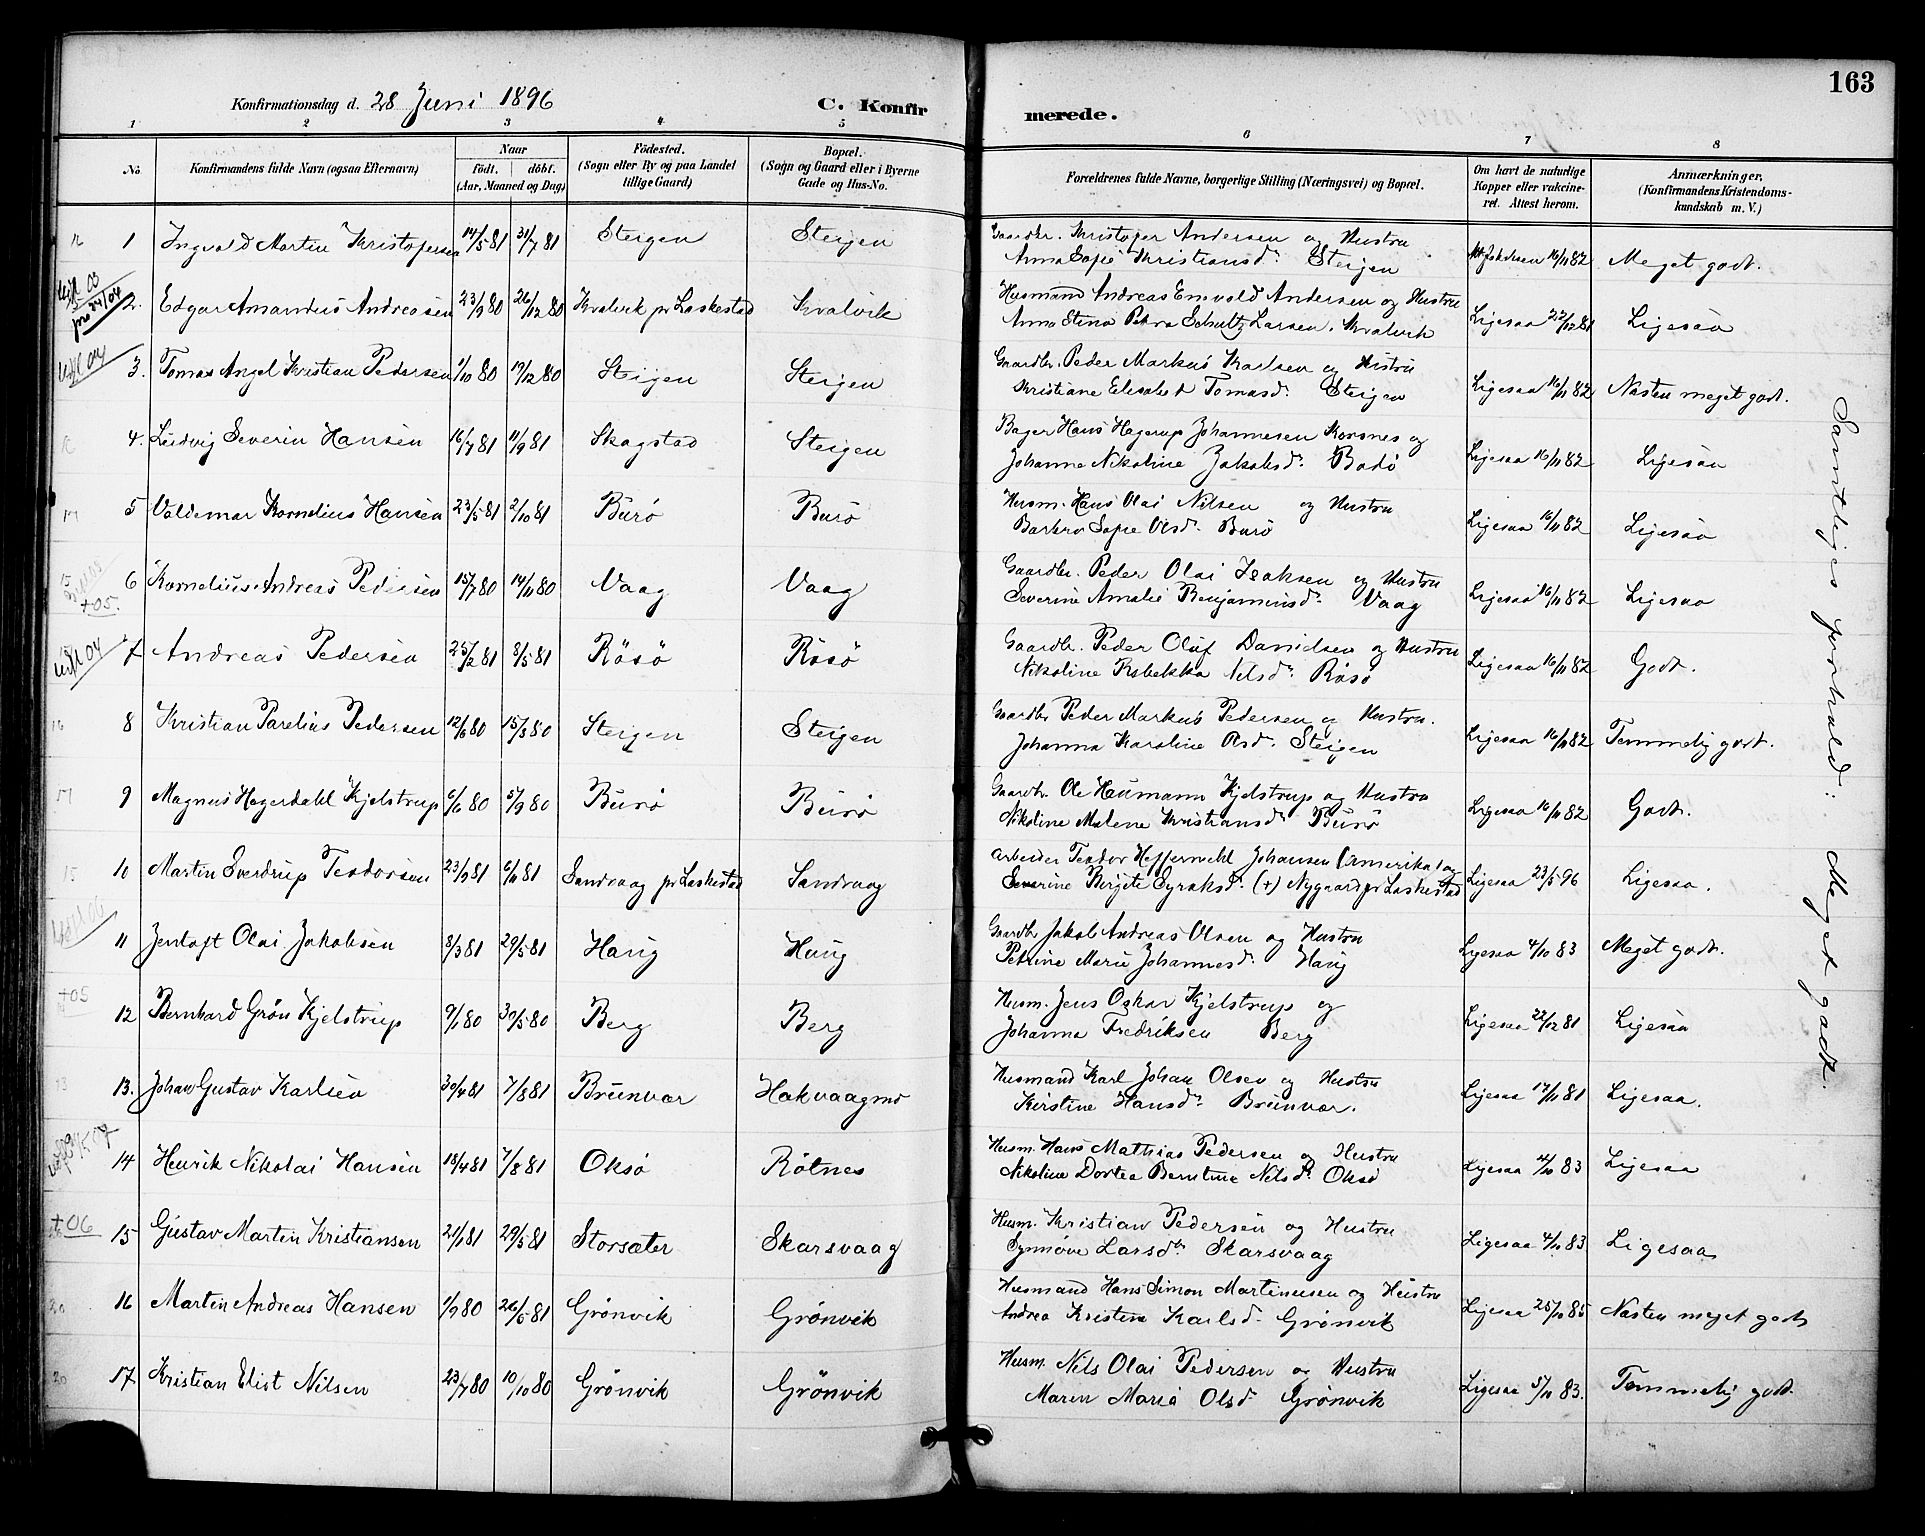 163
Konfirmationsdag d. 28 Juni 1896 C. Konfir merede.
1 2 3 4 5 6 7 8
No. Konfirmandens fulde Navn (ogsaa Efternavn) Naar födt. döbt. (Aar, Maaned og Dag) Födested. (Sogn eller By og paa Landet tillige Gaard) Bopæl. (Sogn og Gaard eller i Byerne Gade og Hus-No. Forældrenes fulde Navne, borgerlige Stilling (Næringsvei) og Bopæl. Om havt de naturlige Kopper eller vakcineret. Attest herom. Anmærkninger, (Konfirmandens Kristendomskundskab m. V.)
1 Ingvald Martin Kristofersen 14/5 81 31/7 81 Steigen Steigen Gaardbr. Kristofer Andersen og Hustru
Anna Sofie Kristiansd. Steigen 16/11 82 Meget godt.
2. Edgar Amandus Andreasen 23/9 80 26/12 80 Kvalvik pr Laskestad Kvalvik Husmand Andreas Emvald Andersen og Hustru
Anna Stina Petra Schultz Larsen, Kvalvik Ligesaa 22/12 81 Ligesaa
3. Tomas Angel Kristian Pedersen 1/10 80 19/12 80 Steigen Steigen Gaardbr. Peder Markus Karlsen og Hustru
Kristiane Elisabet Tomasd. Steigen Ligesaa 16/11 82 Næsten meget godt.
4. Ludvig Severin Hansen 16/7 81 11/9 81 Skagstad Steigen Bager Hans Hagerup Johannesen Korsnes og
Johanne Nikoline Jakobsd. Bodö Ligesaa 16/11 82 Ligesaa
5 Valdemar Kornelius Hansen 23/5 81 2/10 81 Burö Burö Husm. Hans Olai Nilsen og Hustru
Barbro Sofie Olsd. Burö Ligesaa 16/11 82 Ligesaa
6 Kornelius Andreas Pedersen 15/7 80 14/11 80 Vaag Vaag Gaardbr. Peder Olai Isaksen og Hustru
Severine Amalie Benjaminsd. Vaag Ligesaa 16/11 82 Ligesaa
7 Andreas Pedersen 25/2 81 8/5 81 Rösö Rösö Gaardbr. Peder Oluf Danielsen og Hustru
Nikoline Rebekka Nilsd. Rösö Ligesaa 16/11 82 Godt.
8 Kristian Parelius Pedersen 12/6 80 15/3 80 Steigen Steigen Gaardbr Peder Markus Pedersen og Hustru.
Johanna Karoline Olsd. Steigen Ligesaa 16/11 82 Temmelig godt.
9 Magnus Hegerdahl Kjelstrup 6/6 80 5/9 80 Burö Burö Gaardbr. Ole Heumann Kjelstrup og Hustru
Nikoline Malene Kristiansd. Burö Ligesaa 16/11 82 Godt.
10 Martin Sverdrup Teodorsen 23/9 81 6/11 81 Sandvaag pr Laskestad Sandvaag Arbeider Teodor Heffermehl Johansen (Amerika) og
Severine Birgite Syraksd. (+) Nygaard pr Laskestad Ligesaa 23/5 96 Ligesaa.
11 Jentoft Olai Jakobsen 8/3 81 29/5 81 Haug Haug Gaardbr Jakob Andreas Olsen og Hustru
Petrine Marie Johannesd. Haug Ligesaa 4/10 83 Meget godt.
12 Bernhard Grön Kjelstrup 9/1 80 30/5 80 Berg Berg Husm. Jens Oskar Kjelstrup og
Johanna Fredriksen Berg Ligesaa 22/12 81 Ligesaa
13. Johan Gustav Karlsen 30/4 81 7/8 81 Brunvær Hakvaagmo Husmand Karl Johan Olsen og Hustru
Kirstine Hansd. Brunvær. Ligesaa 17/11 81 Ligesaa.
14 Henrik Nikolai Hansen 18/4 81 7/8 81 Oksö Rötnes Husm. Hans Mathias Pedersen og Hustru
Nikoline Dortea Berntine Nilsd. Oksö Ligesaa 4/10 83 Ligesaa
15 Gustav Martin Kristiansen 21/1 81 29/5 81 Storsæter Skarsvaag Husm. Kristian Pedersen og Hustru
Synnöve Larsd. Skarsvaag Ligesaa 4/10 83 Ligesaa
16 Martin Andreas Hansen 1/9 80 26/5 81 Grönvik Grönvik Husmand Hans Simon Martinusen og Hustru
Andrea Kristine Karlsd. Grönvik Ligesaa 25/10 85 Næsten meget godt
17 Kristian Elist Nilsen 23/7 80 10/10 80 Grönvik Grönvik Husm. Nils Olai Pedersen og Hustru
Maren Maria Olsd Grönvik Ligesaa 5/10 83. Temmelig godt.
Samtliges forhold: Meget godt.